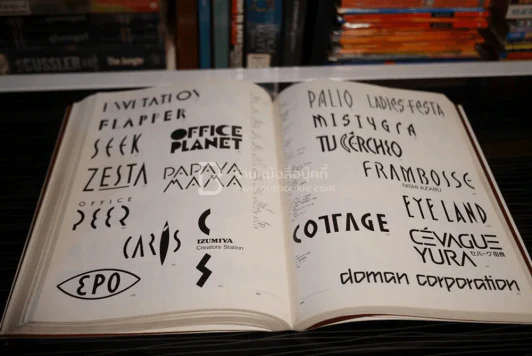 CUSSLER
The Jungle
INVITATION
FLAPPER
SEEK
OFFICE
PLANET
ZESTA
PAPAYA
MAMA
OFFICE
PEER
CARIS
IZUMIYA
Creators Station
EPO
PALIO
LADIES FESTA
MISTYGRA
TU CÉRCHIO
FRAMBOISSE
NISHI AZABU
EYELAND
COTTAGE
CÉVAGUE
YURA
doman corporation